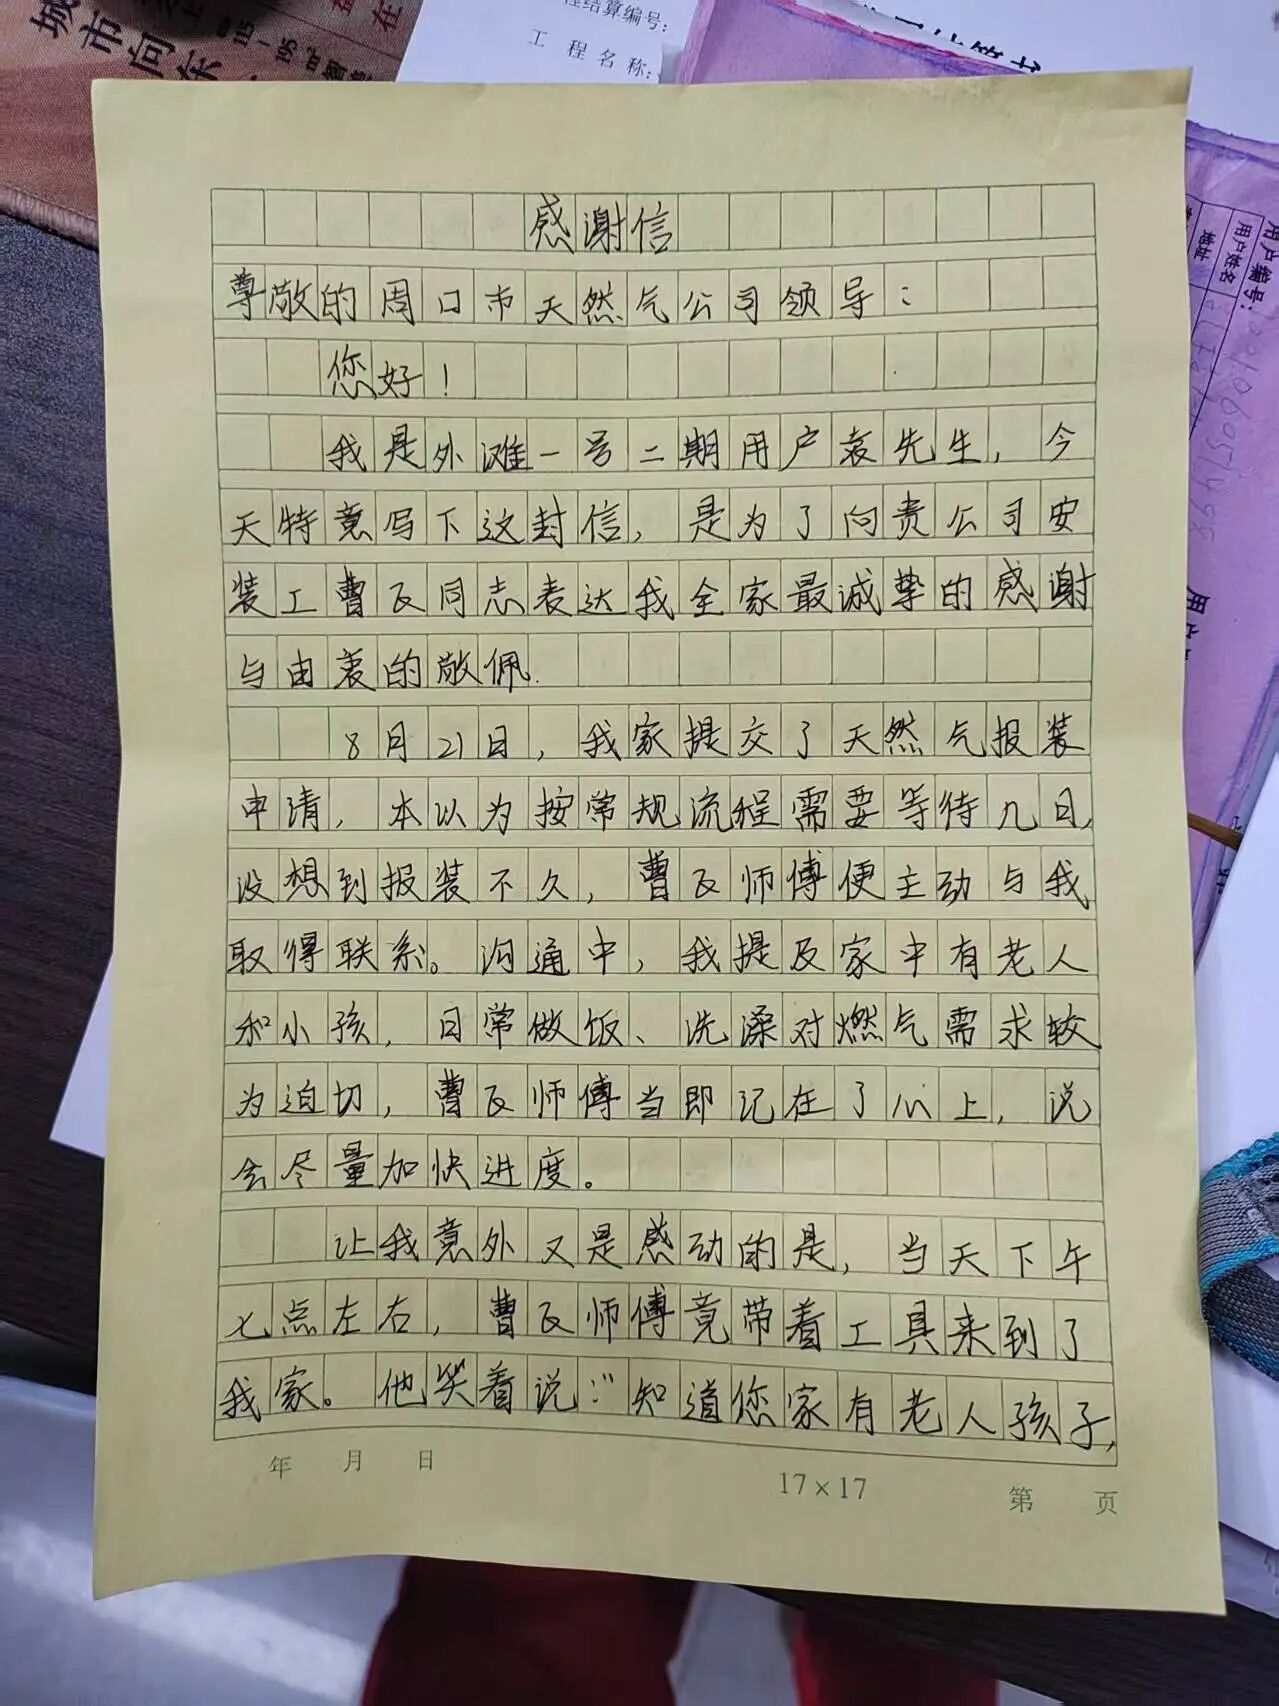 城市向东
程结算编号:
工 程 名 称:
用户编号:
用户姓名
地址
感谢信
尊敬的周口市天然气公司领导:
您好!
我是外滩一号二期用户袁先生,今
天特意写下这封信,是为了向贵公司安
装工曹瓦同志表达我全家最诚挚的感谢
与由衷的敬佩.
8月21日,我家提交了天然气报装
申请,本以为按常规流程需要等待几日,
没想到报装不久,曹瓦师傅便主动与我
取得联系。沟通中,我提及家中有老人
和小孩,日常做饭、洗澡对燃气需求较
为迫切,曹瓦师傅当即记在了心上,说
会尽量加快进度。
让我意外又是感动的是,当天下午
七点左右,曹瓦师傅竟带着工具来到了
我家。他笑着说:"知道您家有老人孩子,
年 月 日
17×17
第 页